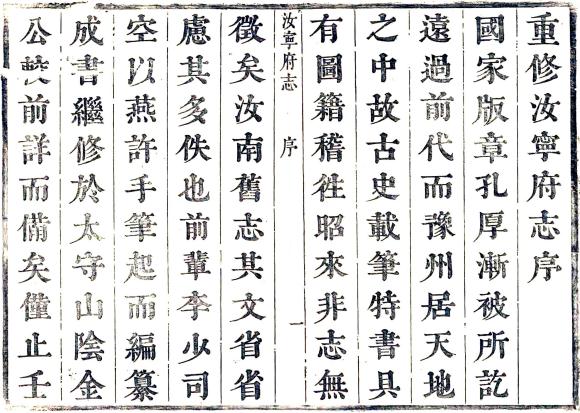 重修汝寧府志序
國家版章孔厚漸被所訖
遠過前代而豫州居天地
之中故古史載筆特書具
有圖籍稽徃昭來非志無
汝寧府志 序 一
徵矣汝南舊志其文省省
慮其多佚也前輩李少司
空以燕許手筆起而編纂
成書繼修於太守山陰金
公㷀前詳而備矣僅止壬